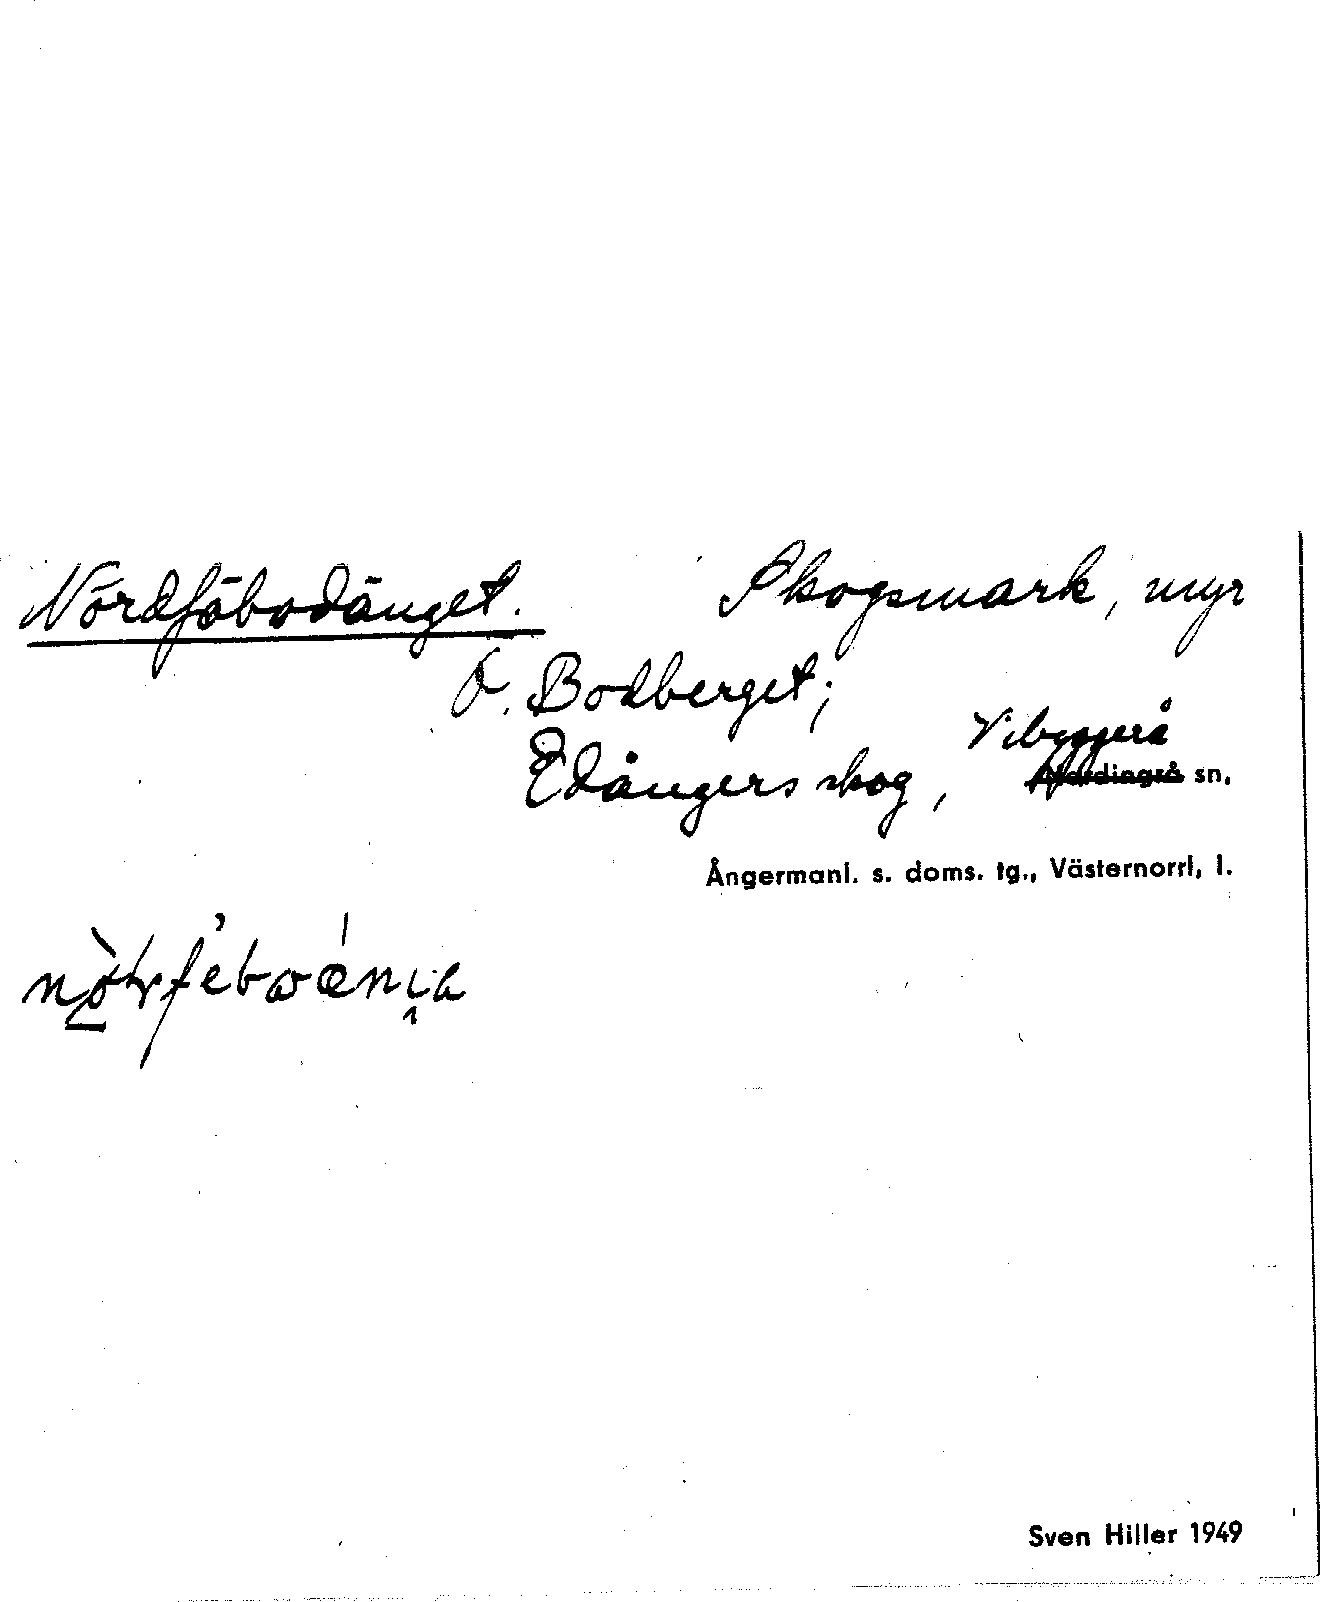 Nordfäbodänget. Skogsmark, myr
Ö. Bodberget;
Edångers skog, Vibyggerå
Nordingrå sn.
Ångermanl. s. doms. tg., Västernorrl, l.
Sven Hiller 1949